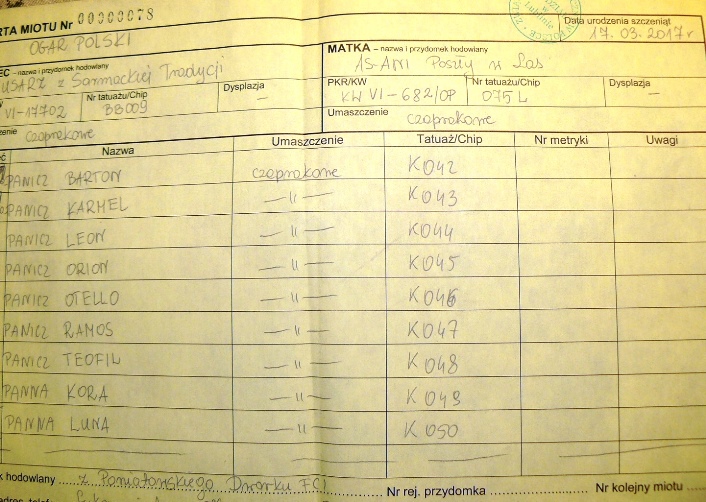 RTA MIOTU Nr 00000078
Data urodzenia szczeniąt
17.03.2017r
OGAR POLSKI
MATKA – nazwa i przydomek hodowlany
IEC – nazwa i przydomek hodowlany
USARZ z Sarmackiej Tradycji
IS-ANI Poszły w Las
PKR/KW
KW VI-682/OP
Nr tatuażu/Chip
075L
Dysplazja
—
VI-17702
Nr tatuażu/Chip
BB009
Dysplazja
—
Umaszczenie
czaprakowe
zenie
czaprakowe
Nazwa Umaszczenie Tatuaż/Chip Nr metryki Uwagi
PANICZ BARTON czaprakowe K042
PANICZ KARMEL —"— K043
PANICZ LEON —"— K044
PANICZ ORION —"— K045
PANICZ OTELLO —"— K046
PANICZ RAMOS —"— K047
PANICZ TEOFIL —"— K048
PANNA KORA —"— K049
PANNA LUNA —"— K050
k hodowlany z Poniatowskiego Dworku FCI Nr rej. przydomka Nr kolejny miotu